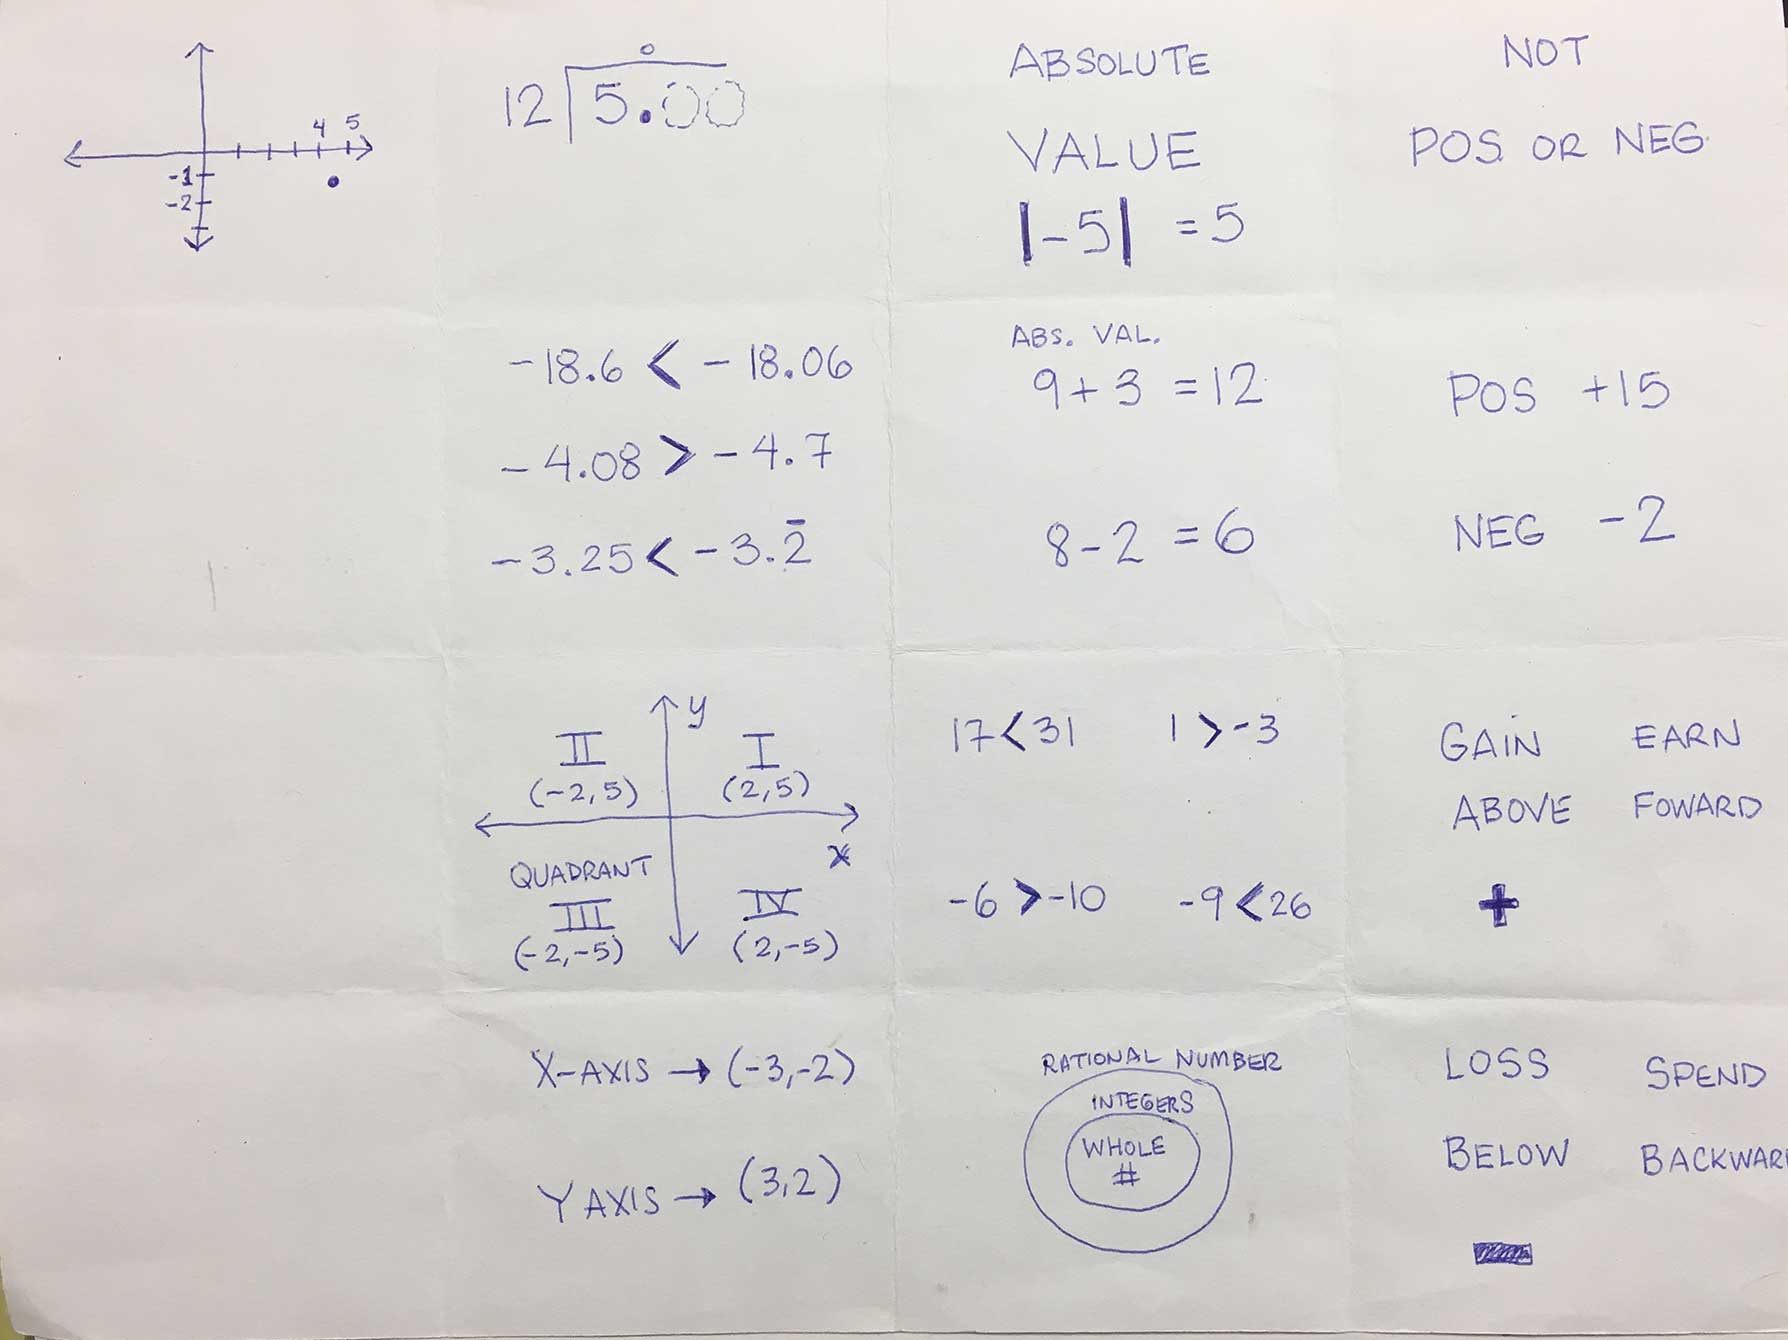 4 5
-1
-2
0
12 5.00
ABSOLUTE
VALUE
|-5| = 5
NOT
POS. OR NEG.
-18.6 < -18.06
-4.08 > -4.7
-3.25 < -3.2̄
ABS. VAL.
9 + 3 = 12
8 - 2 = 6
POS +15
NEG -2
y
II I
(-2,5) (2,5)
x
QUADRANT
III IV
(-2,-5) (2,-5)
17 < 31 1 > -3
-6 > -10 -9 < 26
GAIN EARN
ABOVE FOWARD
+
X-AXIS → (-3,-2)
Y AXIS → (3,2)
RATIONAL NUMBER
INTEGERS
WHOLE
#
LOSS SPEND
BELOW BACKWAR
-